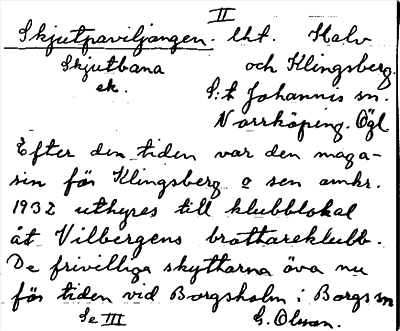 II
Skjutpaviljongen. lht. Halv
Skjutbana och Klingsberg.
ek. S:t Johannis sn.
Norrköping. Ögl
Efter den tiden var den maga-
sin för Klingsberg o sen omkr.
1932 uthyres till klubblokal
åt Vilbergens brottareklubb.
De frivilliga skyttarna öva nu
för tiden vid Borgsholm i Borgs sn
Se III G. Olson.